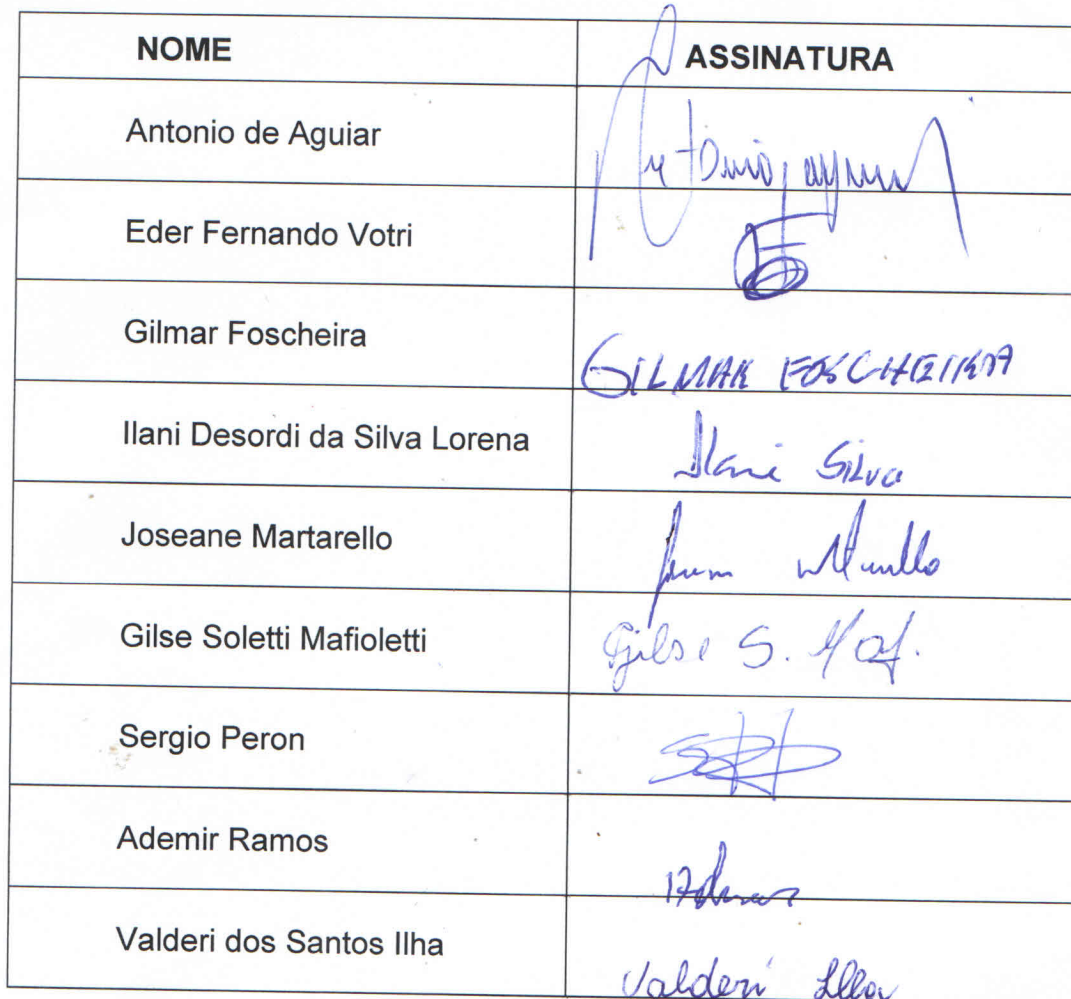 NOME ASSINATURA
Antonio de Aguiar Antonio j aguiar
Eder Fernando Votri
Gilmar Foscheira GILMAR FOSCHEIRA
Ilani Desordi da Silva Lorena Ilani Silva
Joseane Martarello
Gilse Soletti Mafioletti Gilse S. Maf.
Sergio Peron
Ademir Ramos
Valderi dos Santos Ilha Valderi Ilha